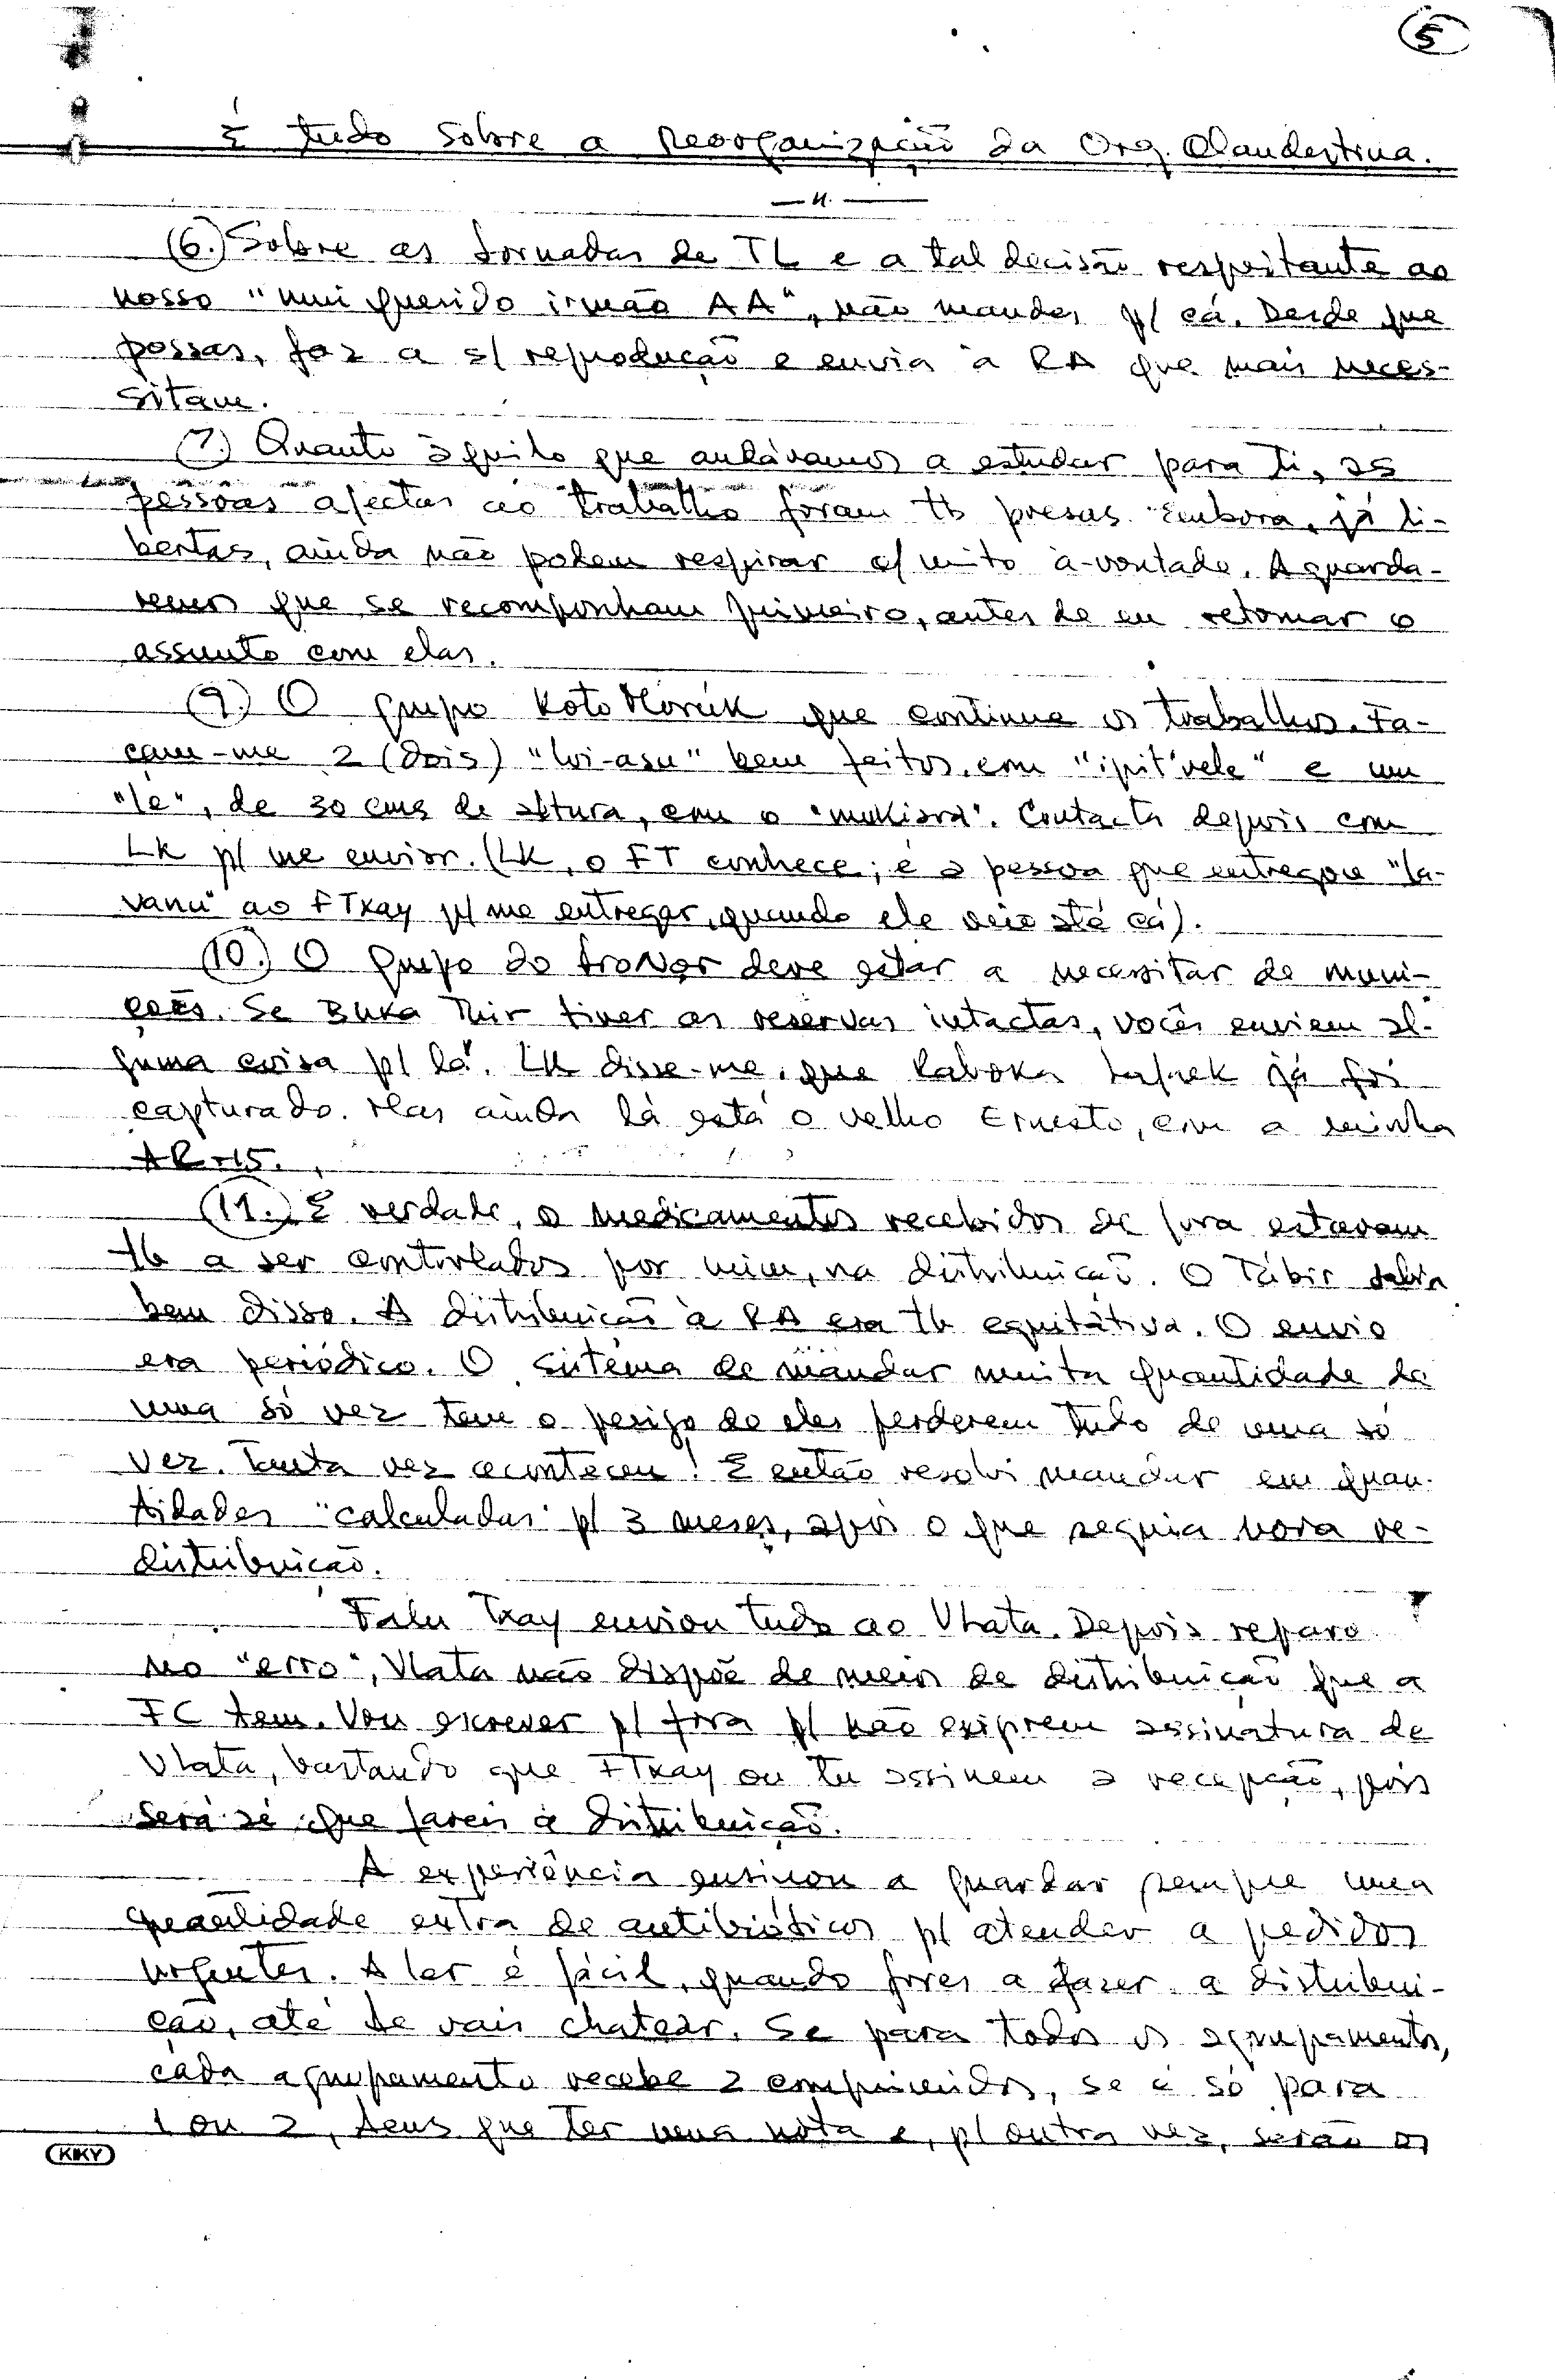 5
É tudo sobre a Reorganização da Org. Clandestina.
(6.) Sobre as Jornadas de TL e a tal decisão respeitante ao
nosso "mui querido irmão AA", não mandes p/ cá. Desde que
possas, faz a s/ reprodução e envia à RA que mais neces-
sitam.
(7.) Quanto àquilo que andávamos a estudar para ti, as
pessoas afectas ao trabalho foram tb presas. Embora, já li-
bertas, ainda não podem respirar c/ mito à-vontade. Aguarda-
remos que se recomponham primeiro, antes de eu retomar o
assunto com elas.
(9.) O grupo Koto Moruk que continue os trabalhos. Fa-
çam-me 2 (dois) "loi-asu" bem feitos, com "ipit'vele" e um
"le", de 30 cms de altura, com o. Contacta depois com
LK p/ me enviar. (LK, o FT conhece; é a pessoa que entregou "la-
vanu" ao FTxay p/ me entregar, quando ele veio até cá).
(10.) O grupo do deve estar a necessitar de muni-
ções. Se Buka Thir tiver as reservas intactas, vocês enviem al-
guma coisa p/ lá. LK disse-me, que já foi
capturado. Mas ainda lá está o velho Ernesto, com a minha
AR-15.
(11.) É verdade, o medicamentos recebidos de fora estavam
tb a ser controlados por mim, na distribuição. O Tábir sabia
bem disso. A distribuição à RA era tb equitativa. O envio
era periódico. O sistema de mandar muita quantidade de
uma só vez tem o perigo de eles perderem tudo de uma só
vez. Tanta vez aconteceu! E então resolvi mandar em quan-
tidades "calculadas" p/ 3 meses, após o que seguia nova re-
distribuição.
Falu Txay enviou tudo ao Vlata. Depois reparo
no "erro", Vlata não dispõe de meios de distribuição que a
FC tem. Vou escrever p/ fora p/ não exigirem assinatura de
Vlata, bastando que FTxay ou tu assinem a recepção, pois
será sé que fareis a distribuição.
A experiência ensinou a guardar sempre uma
quantidade extra de antibióticos p/ atender a pedidos
urgentes. A ler é fácil, quando fores a fazer a distribui-
ção, até te vais chatear. Se para todos os agrupamentos,
cada agrupamento recebe 2 comprimidos, se é só para
1 ou 2, tens que ter uma nota e, p/ outra vez, serão os
KIKY